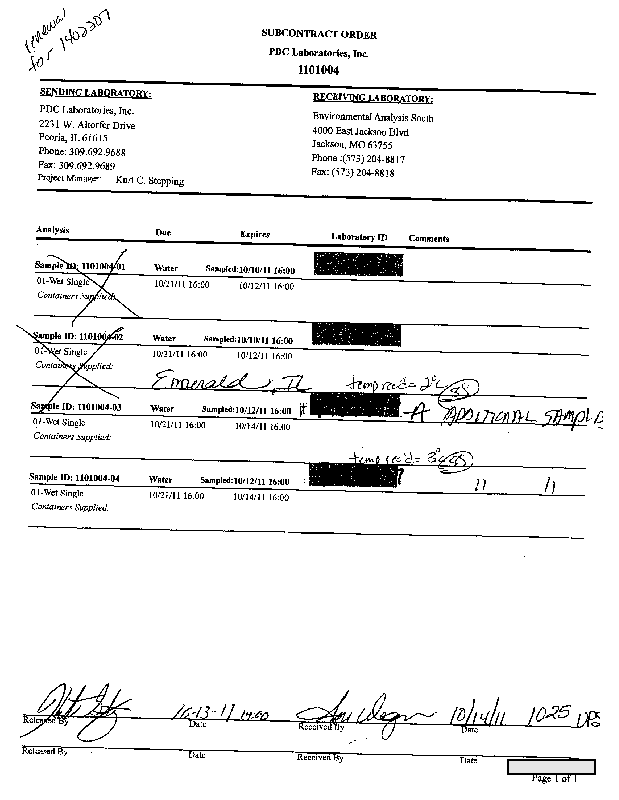 renewal
for 1402307
SUBCONTRACT ORDER
PDC Laboratories, Inc.
1101004
SENDING LABORATORY:
PDC Laboratories, Inc.
2231 W. Altorfer Drive
Peoria, IL 61615
Phone: 309.692.9688
Fax: 309.692.9689
Project Manager: Kurt C. Stepping
RECEIVING LABORATORY:
Environmental Analysis South
4000 East Jackson Blvd
Jackson, MO 63755
Phone :(573) 204-8817
Fax: (573) 204-8818
Analysis Due Expires Laboratory ID Comments
Sample ID: 1101004-01 Water Sampled:10/10/11 16:00
01-Wet Single 10/21/11 16:00 10/12/11 16:00
Containers Supplied:
Sample ID: 1101004-02 Water Sampled:10/10/11 16:00
01-Wet Single 10/21/11 16:00 10/12/11 16:00
Containers Supplied:
Emerald, IL temp rec'd = 2°C
Sample ID: 1101004-03 Water Sampled:10/12/11 16:00 # -A ADDITIONAL SAMPLE
01-Wet Single 10/21/11 16:00 10/14/11 16:00
Containers Supplied:
temp rec'd = 3°C
Sample ID: 1101004-04 Water Sampled:10/12/11 16:00 " "
01-Wet Single 10/21/11 16:00 10/14/11 16:00
Containers Supplied:
10-13-11 1400 10/14/11 1025 UPS
Released By Date Received By Date
Released By Date Received By Date
Page 1 of 1